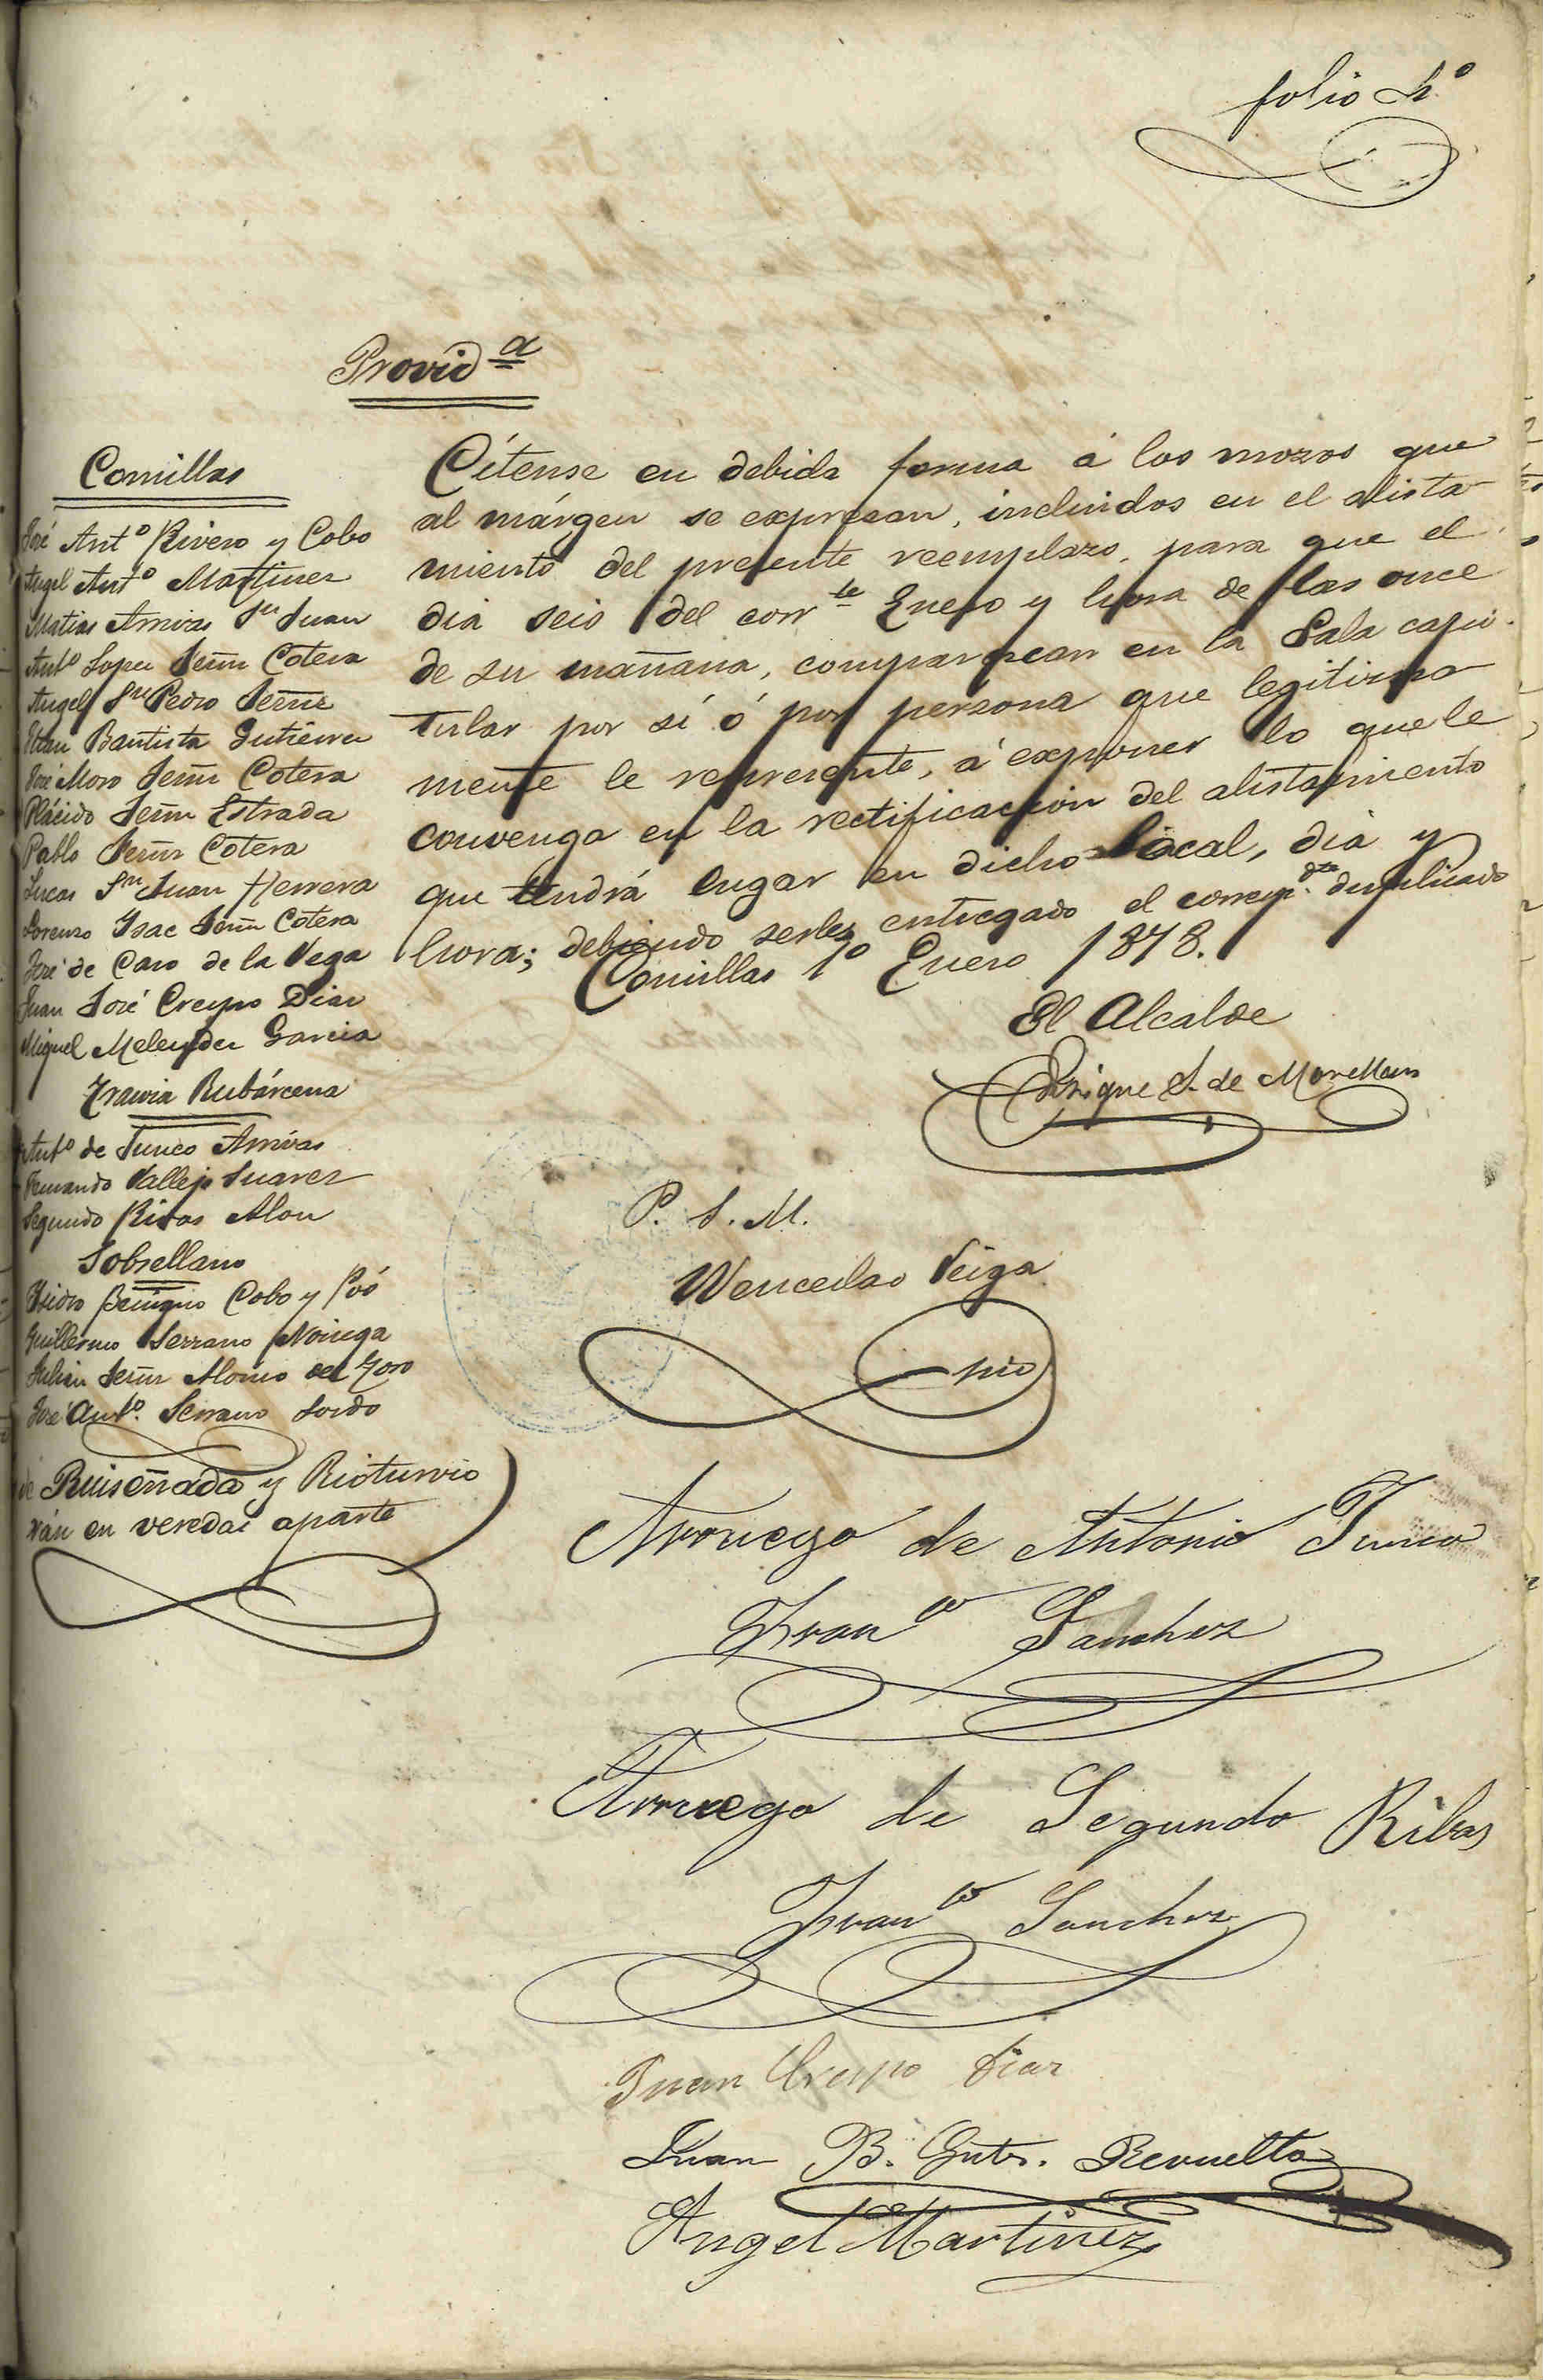 folio 4.º
Provid.ª
Comillas
José Ant.º Rivero y Cobo
Angel Ant.º Martinez
Matias Arnivas Sn Juan
Ant.º Lopez Fernz Cotera
Angel Sn Pedro Fernz
Juan Bautista Gutierrez
José Moro Fernz Cotera
Plácido Fernz Estrada
Pablo Fernz Cotera
Lucas Sn Juan Herrera
Lorenzo Isac Fernz Cotera
José de Caso de la Vega
Juan José Crespo Diaz
Miguel Melendez Garcia
Trasvia Rubárcena
Ant.º de Junco Arnivas
Fernando Vallejo Suarez
Segundo Ribas Alon
Sobrellano
Isidro Benigno Cobo y Póo
Guillermo Serrano Noriega
Julian Fernz Alonso del Toro
José Ant.º Serrano Sordo
de Ruiseñada y Rioturvio
irán en veredas aparte
Cítense en debida forma á los mozos que
al márgen se expresan, incluidos en el alista-
miento del presente reemplazo, para que el
dia seis del corrte Enero y hora de las once
de su mañana, comparezcan en la Sala capi-
tular por sí ó por persona que legitima-
mente le represente, á exponer lo que le
convenga en la rectificacion del alistamiento
que tendrá lugar en dicho local, dia y
hora; debiendo serles entregado el corresp.dte duplicado
Comillas 1º Enero 1878.
El Alcalde
Enrique S. de Movellan
P. S. M.
Wenceslao Veiga
srio
Arruego de Antonio Junco
Franco Sanchez
Arruego de Segundo Ribas
Franco Sanchez
Juan Crespo Diaz
Juan B. Gutz. Revuelta
Angel Martinez